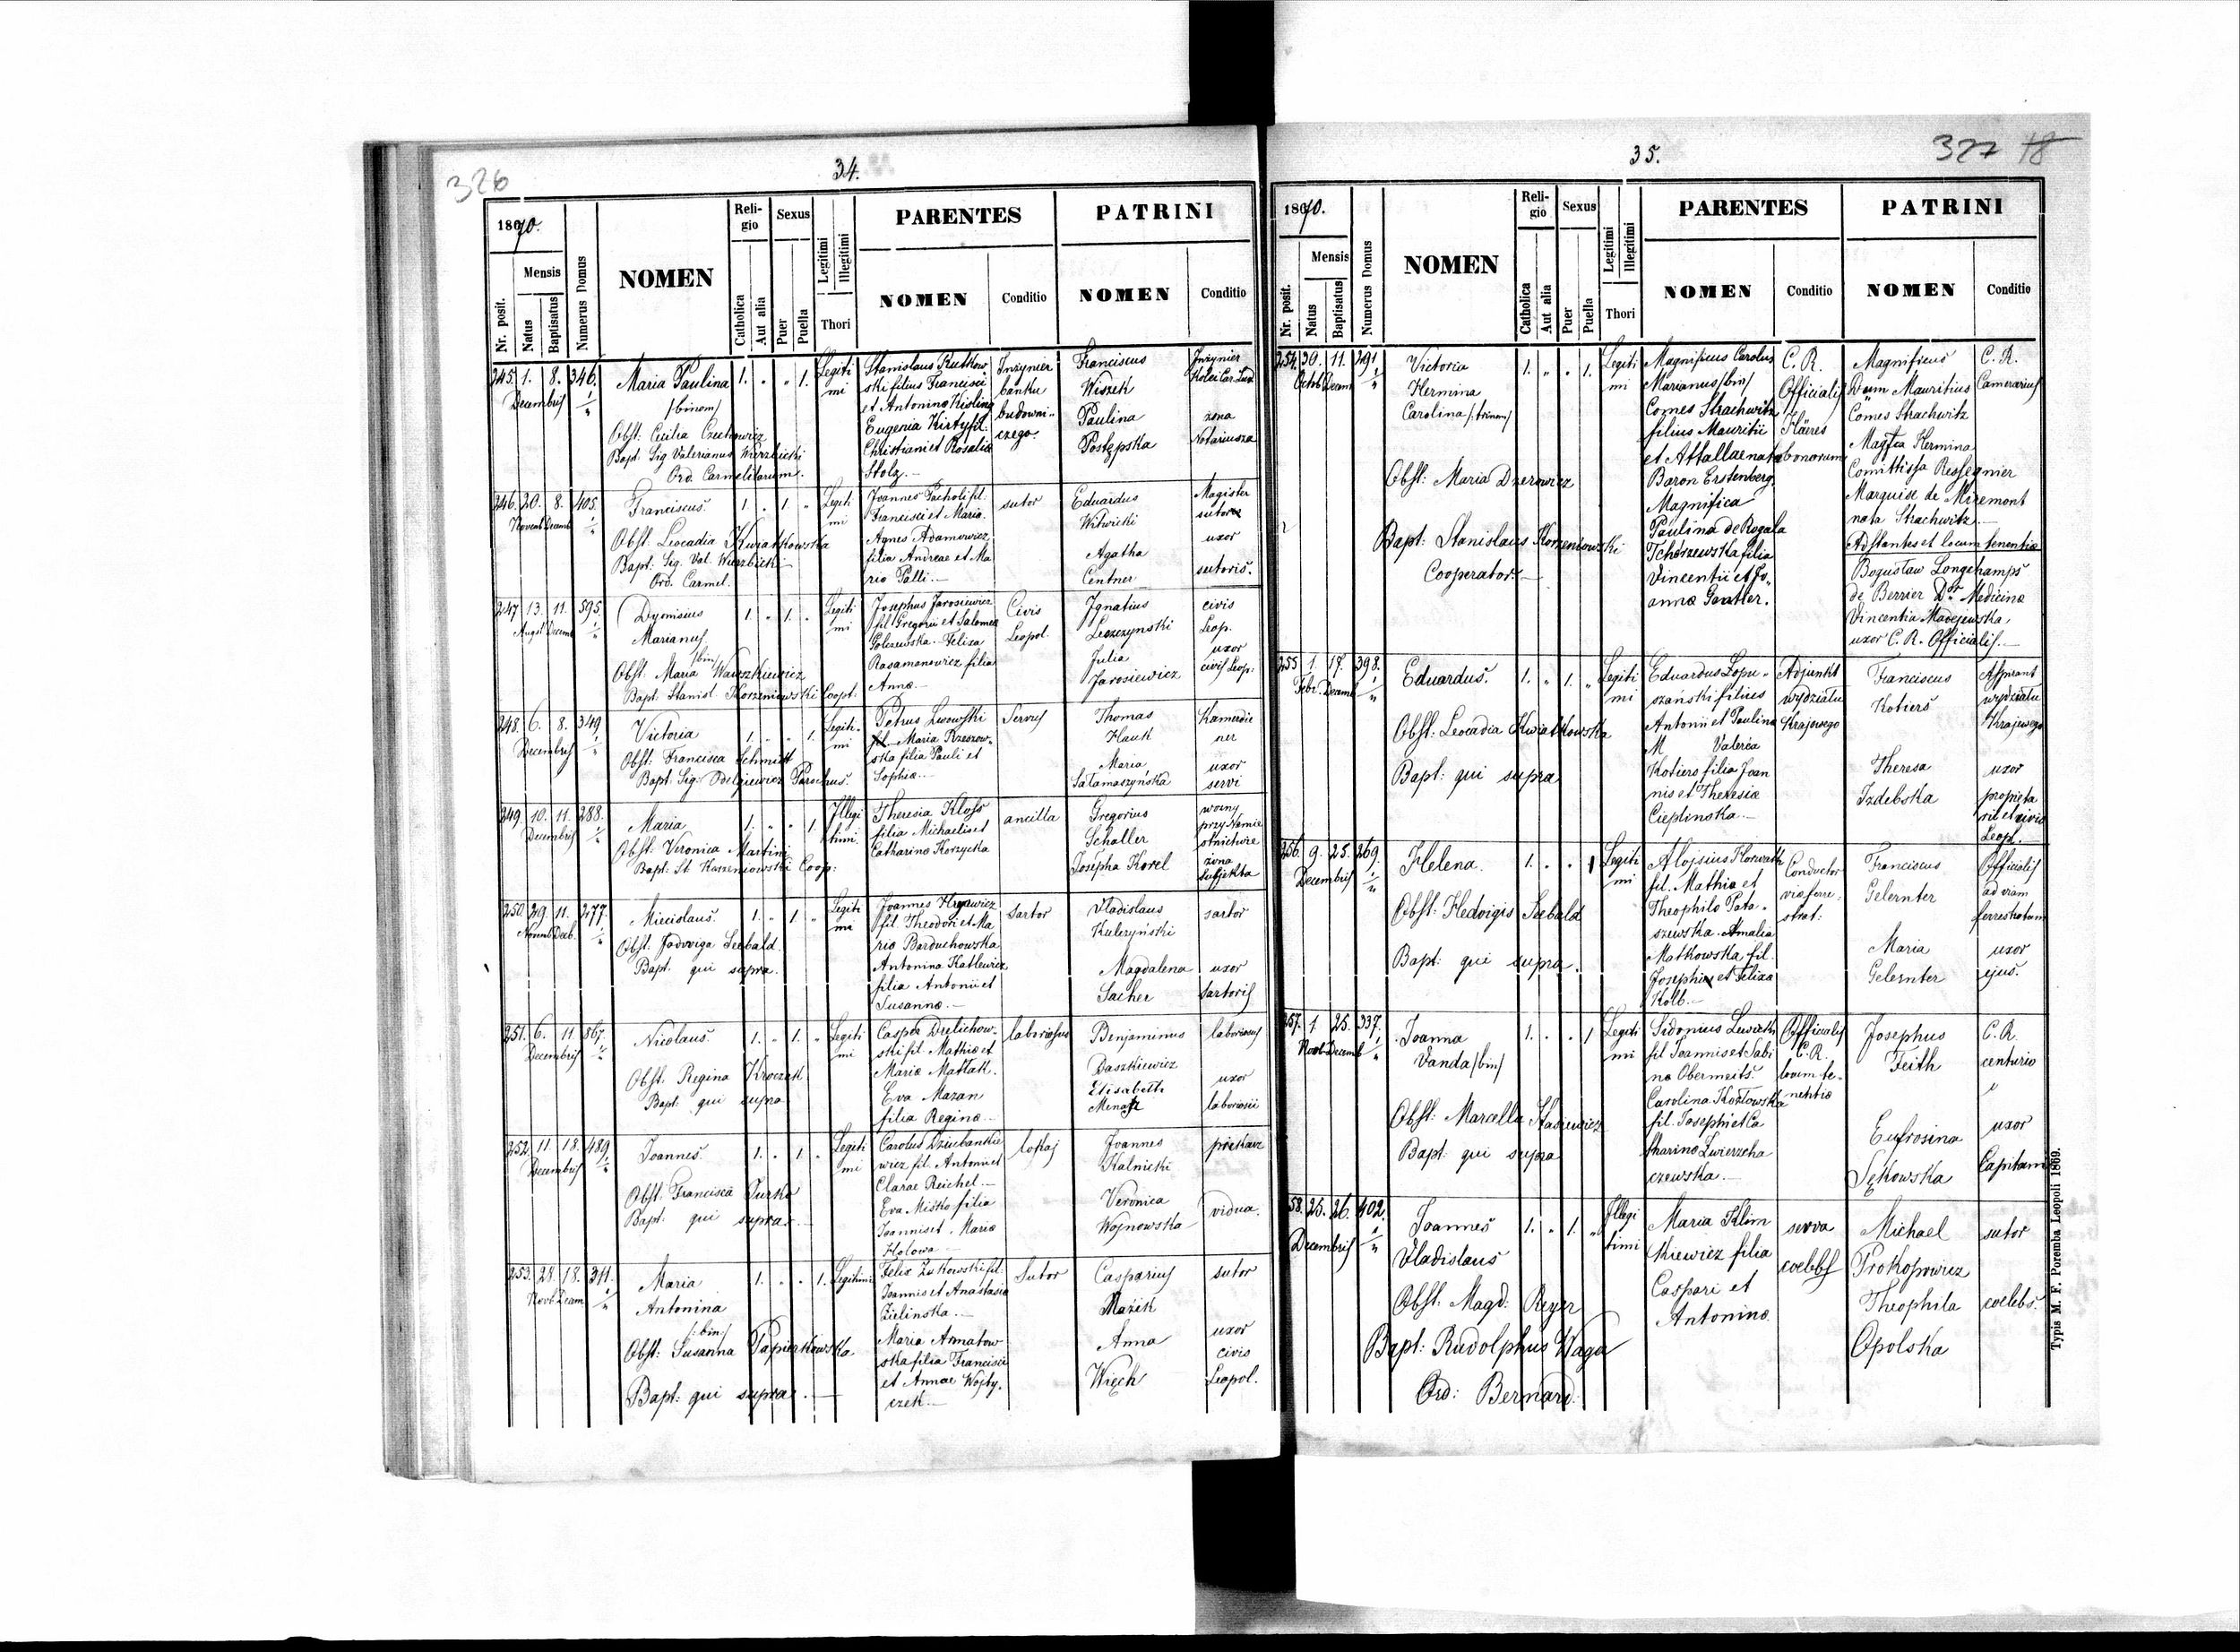 326
34.
1870.
Nr. posit.
Mensis
Natus
Baptisatus
Numerus Domus
NOMEN
Religio
Catholica
Aut alia
Sexus
Puer
Puella
Legitimi
Illegitimi
Thori
PARENTES
NOMEN
Conditio
PATRINI
NOMEN
Conditio
245. 1. 8. 346.
Decembris
Maria Paulina
/binom/
Obst: Cecilia Czechowicz
Bapt. Sig Valerianus Wierzbicki
Ord. Carmelitarum.
1. " " 1.
Legiti
mi
Stanislaus Rutkow
ski filius Francisci
et Antoninæ Kisling
Eugenia Kirty fil.
Christiani et Rosaliæ
Stolz.
Inżynier
banku
budowni-
czego.
Franciscus
Wiszek
Paulina
Postępska
Inżynier
Kolei Car. Lud
żona
Notariusza
246. 20. 8. 405.
Novemb Decemb
Franciscus.
Obst. Leocadia Kwiatkowska
Bapt: Sig. Val. Wierzbicki
Ord. Carmel.
1. " 1 "
Legiti
mi
Joannes Pacholi fil.
Francisci et Maria.
Agnes Adamowicz
filia Andreae et Ma
riæ Palli.
sutor
Eduardus
Witwicki
Agatha
Centner
Magister
sutor
uxor
sutoris.
247 13. 11. 595
August Decemb
Dyonisius
Marianus
/bin/
Obst. Maria Waniszkiewicz
Bapt. Stanisl. Korzeniowski Coopt:
1. " 1. "
Legiti
mi
Josephus Jarosiewicz
fil Gregorii et Salomea
Golczewska. Feliza
Rasamanowicz filia
Annæ.
Civis
Leopol.
Ignatius
Leszczynski
Julia
Jarosiewicz
civis
Leop.
uxor
civis Leop.
248. 6. 8. 349.
Decembris
Victoria
Obst: Francisca Schmitt
Bapt. Sig: Odelgiewicz Parochus.
1. " " 1
Legiti-
mi
Petrus Lwowski
fil. Maria Rzeszow-
ska filia Pauli et
Sophiæ.
Servus
Thomas
Hauk
Maria
Sałamaszyńska
Kamerdie
ner
uxor
servi
249. 10. 11. 288.
Decembris
Maria
Obst. Veronica Martini
Bapt: St Korzeniowski Coop:
1. " " 1.
Illegi
timi.
Theresia Kloss
filia Michaelis et
Catharinæ Korzycka
ancilla
Gregorius
Schaller
Josepha Korel
woźny
przy Namie
stnictwie
żona
Subjekta
250. 29. 11. 277.
Novemb Decb.
Miecislaus.
Obst. Jadwiga Seebald.
Bapt. qui supra.
1. " 1 "
Legiti
mi
Joannes Hrycwicz
fil. Theodori et Ma
riæ Barduchowska
Antonina Katlewicz
filia Antonii et
Susannæ.
Sartor
Vladislaus
Kulczyński
Magdalena
Sacher
sartor
uxor
Sartoris
251. 6. 11 867.
Decembris
Nicolaus.
Obst. Regina Kroczak
Bapt: qui supra
1. " 1. "
Legiti
mi
Caspar Drelichow-
ski fil. Mathiæ et
Mariæ Matlak.
Eva Mazan
filia Reginæ
laboriosus
Benjaminus
Daszkiewicz
Elisabeth
laboriosus
uxor
laboriosii
252. 11. 18. 489.
Decembris
Joannes.
Obst: Francisca Turko
Bapt. qui supra.
1. " 1. "
Legiti
mi
Carolus Dziubankie
wicz fil. Antonii et
Clarae Reichel.
Eva Miśko filia
Joannis et Mariæ
Holowa
lokaj
Joannes
Kalnicki
Veronica
Wojnowska
piekarz
vidua.
253. 28. 18. 311.
Novb. Decem
Maria
Antonina
/:bin:/
Obst: Susanna Papierkowska
Bapt: qui supra.
1. " " 1.
Legitimi
Felix Żukowski fil.
Joannis et Anastasiæ
Zielinska.
Maria Armatow
ska filia Francisci
et Annae Wojty-
czek.
Sutor
Casparius
Mazik
Anna
Więch
sutor
uxor
civis
Leopol.
327 18
35.
1870.
Nr. posit.
Mensis
Natus
Baptisatus
Numerus Domus
NOMEN
Religio
Catholica
Aut alia
Sexus
Puer
Puella
Legitimi
Illegitimi
Thori
PARENTES
NOMEN
Conditio
PATRINI
NOMEN
Conditio
254. 30. 11. 391
Octob Decem
Victoria
Hermina
Carolina /:trinom/
Obst: Maria Dzerowicz
Bapt: Stanislaus Korzeniowski
Cooperator.
1. " " 1.
Legiti
mi
Magnificus Carolus
Marianus /bin/
Comes Strachwitz
filius Mauritii
et Attallae nata
Baron Erstenberg
Magnifica
Paulina de Rogala
Tchorzewska filia
Vincentii et Jo-
annæ Gautier.
C. R.
Officialis
Häeres
bonorum
Magnificus
Dum Mauritius
Comes Strachwitz
Magfca Hermina
Comitissa Ressegnier
Marquise de Miremont
nata Strachwitz.
Adstantes et locum tenentiæ
Bogusław Longchamps
de Berrier Dor Medicinæ
Vincentia Madejewska,
uxor C. R. Officialis.
C. R.
Camerarius
255 1. 17. 398.
Febr. Decemb
Eduardus.
Obst: Leocadia Kwiatkowska
Bapt: qui supra
1. " 1. "
Legiti
mi
Eduardus Łopu-
szański filius
Antonii et Paulina
M Valeria
Kotiers filia Joan
nis et Theresiæ
Cieplinska.
Adjunkt
wydziału
Krajowego
Franciscus
Kotiers
Theresa
Izdebska
Assparant
wydziału
Krajowego
uxor
propieta
rii et civis
Leopl.
256. 9. 25. 269.
Decembris
Helena.
Obst: Hedvigis Seebald
Bapt: qui supra.
1. " " 1
Legiti
mi
Alojsius Horwath
fil. Mathiæ et
Theophila Pata-
szewska. Amalia
Matkowska fil.
Josephi et Felixa
Kolb.
Conductor
viæ ferre.
strat:
Franciscus
Gelernter
Maria
Gelernter
Officialis
ad viam
ferrestratam
uxor
ejus.
257. 1 25. 337.
Novb Decemb
Joanna
Vanda /bin/
Obst: Marcella Stasiewicz
Bapt: qui supra
1. " " 1
Legiti
mi
Sidonius Lewicki
fil Joannis et Sabi
na Obermeits.
Carolina Kozłowska
fil. Josephi et Ca
tharinæ Zwierzcha
czewska.
Officialis
C. R.
locum te-
nentiæ
Josephus
Feith
Eufrosina
Sękowska
C. R.
centurio
uxor
Capitani
58. 25. 26. 402.
Decembris
Joannes
Vladislaus
Obst. Magd: Reyer
Bapt: Rudolphus Waga
Ord: Bernard.
1. " 1. "
Illegi
timi
Maria Klim
kiewicz filia
Caspari et
Antoninæ.
serva
coelebs
Michael
Prokopowicz
Theophila
Opolska
sutor
coelebs.
Typis M. F. Poremba Leopoli 1869.